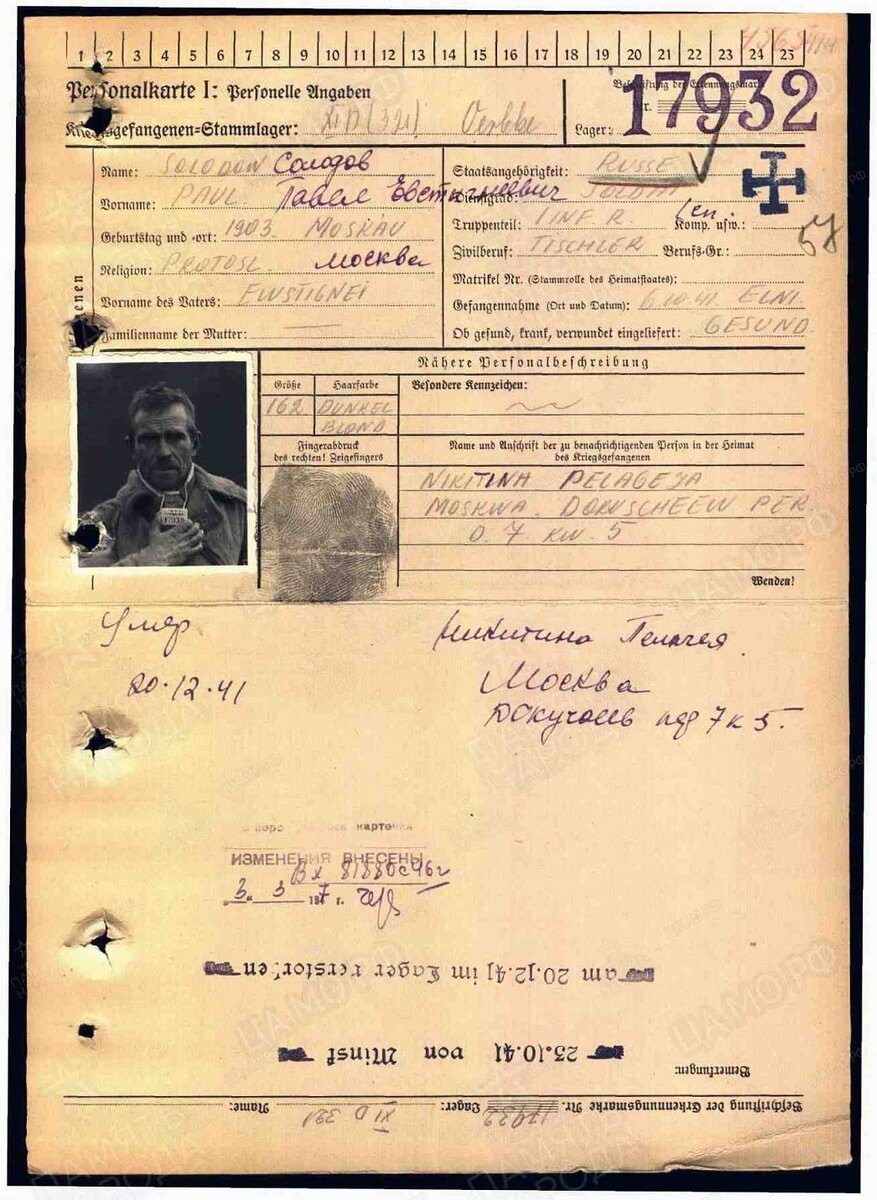 1 2 3 4 5 6 7 8 9 10 11 12 13 14 15 16 17 18 19 20 21 22 23 24 25
Personalkarte I: Personelle Angaben
Beschriftung der Erkennungsmarke
Nr. 17932
Kriegsgefangenen-Stammlager: XI D (321) Oerbke Lager:
Name: SOLODOW Солодов
Vorname: PAUL Павел Евстигнеевич
Geburtstag und -ort: 1903. MOSKAU
Religion: PROTOSL. Москва
Vorname des Vaters: EWSTIGNEI
Familienname der Mutter: —
Staatsangehörigkeit: RUSSE
Dienstgrad: SOLDAT
Truppenteil: 1 INF. R. Komp. usw.:
Zivilberuf: TISCHLER Berufs-Gr.:
58
Matrikel Nr. (Stammrolle des Heimatstaates):
Gefangennahme (Ort und Datum): 6.10.41. ELNI.
Ob gesund, krank, verwundet eingeliefert: GESUND
Nähere Personalbeschreibung
Größe Haarfarbe Besondere Kennzeichen:
162 DUNKEL
BLOND
Fingerabdruck
des rechten! Zeigefingers
Name und Anschrift der zu benachrichtigenden Person in der Heimat
des Kriegsgefangenen
NIKITINA PELAGEYA
MOSKWA. DOKUSCHEEW PER
D. 7 KW. 5
Wenden!
Умер
20.12.41
Никитина Пелагея
Москва
Докучаев пер 7 к 5.
карточки
ИЗМЕНЕНИЯ ВНЕСЕНЫ
Вх 81880с 46г
3. 3 г.
am 20.12.41 im Lager verstorben
25.10.41 von Minsk
Bemerkungen:
Beschriftung der Erkennungsmarke Nr. 17932 Lager: XI D 321 Name: